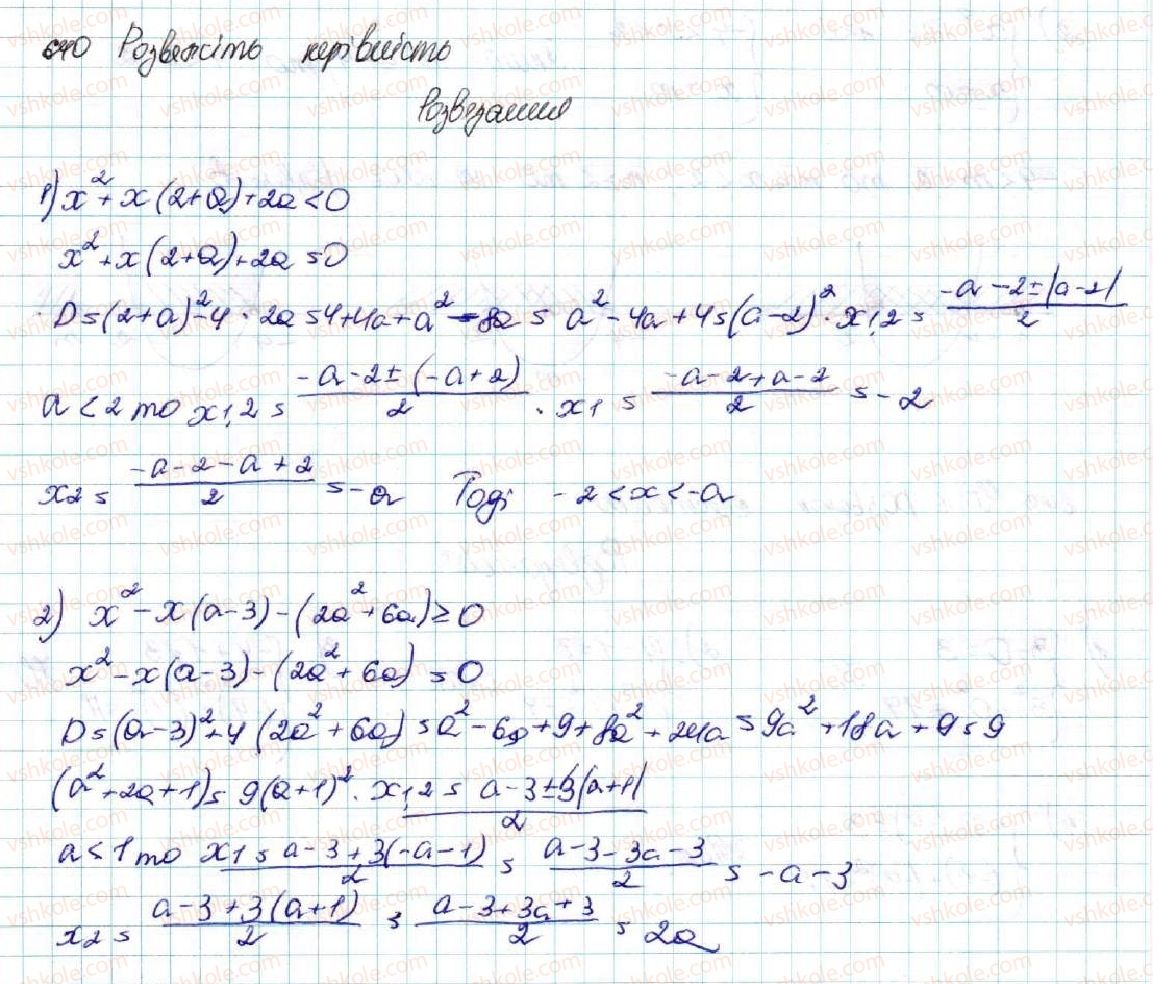 640 Розвяжіть нерівність
Розвязання
1) x² + x(2+a) + 2a < 0
x² + x(2+a) + 2a = 0
D = (2+a)² - 4 · 2a = 4 + 4a + a² - 8a = a² - 4a + 4 = (a-2)². x1,2 = (-a-2±|a-2|)/2
a < 2 то x1,2 = (-a-2±(-a+2))/2. x1 = (-a-2+a-2)/2 = -2
x2 = (-a-2-a+2)/2 = -a Тоді -2 < x < -a
2) x² - x(a-3) - (2a² + 6a) ≥ 0
x² - x(a-3) - (2a² + 6a) = 0
D = (a-3)² + 4(2a² + 6a) = a² - 6a + 9 + 8a² + 24a = 9a² + 18a + 9 = 9
(a² + 2a + 1) = 9(a+1)². x1,2 = (a-3±3|a+1|)/2
a < 1 то x1 = (a-3+3(-a-1))/2 = (a-3-3a-3)/2 = -a-3
x2 = (a-3+3(a+1))/2 = (a-3+3a+3)/2 = 2a